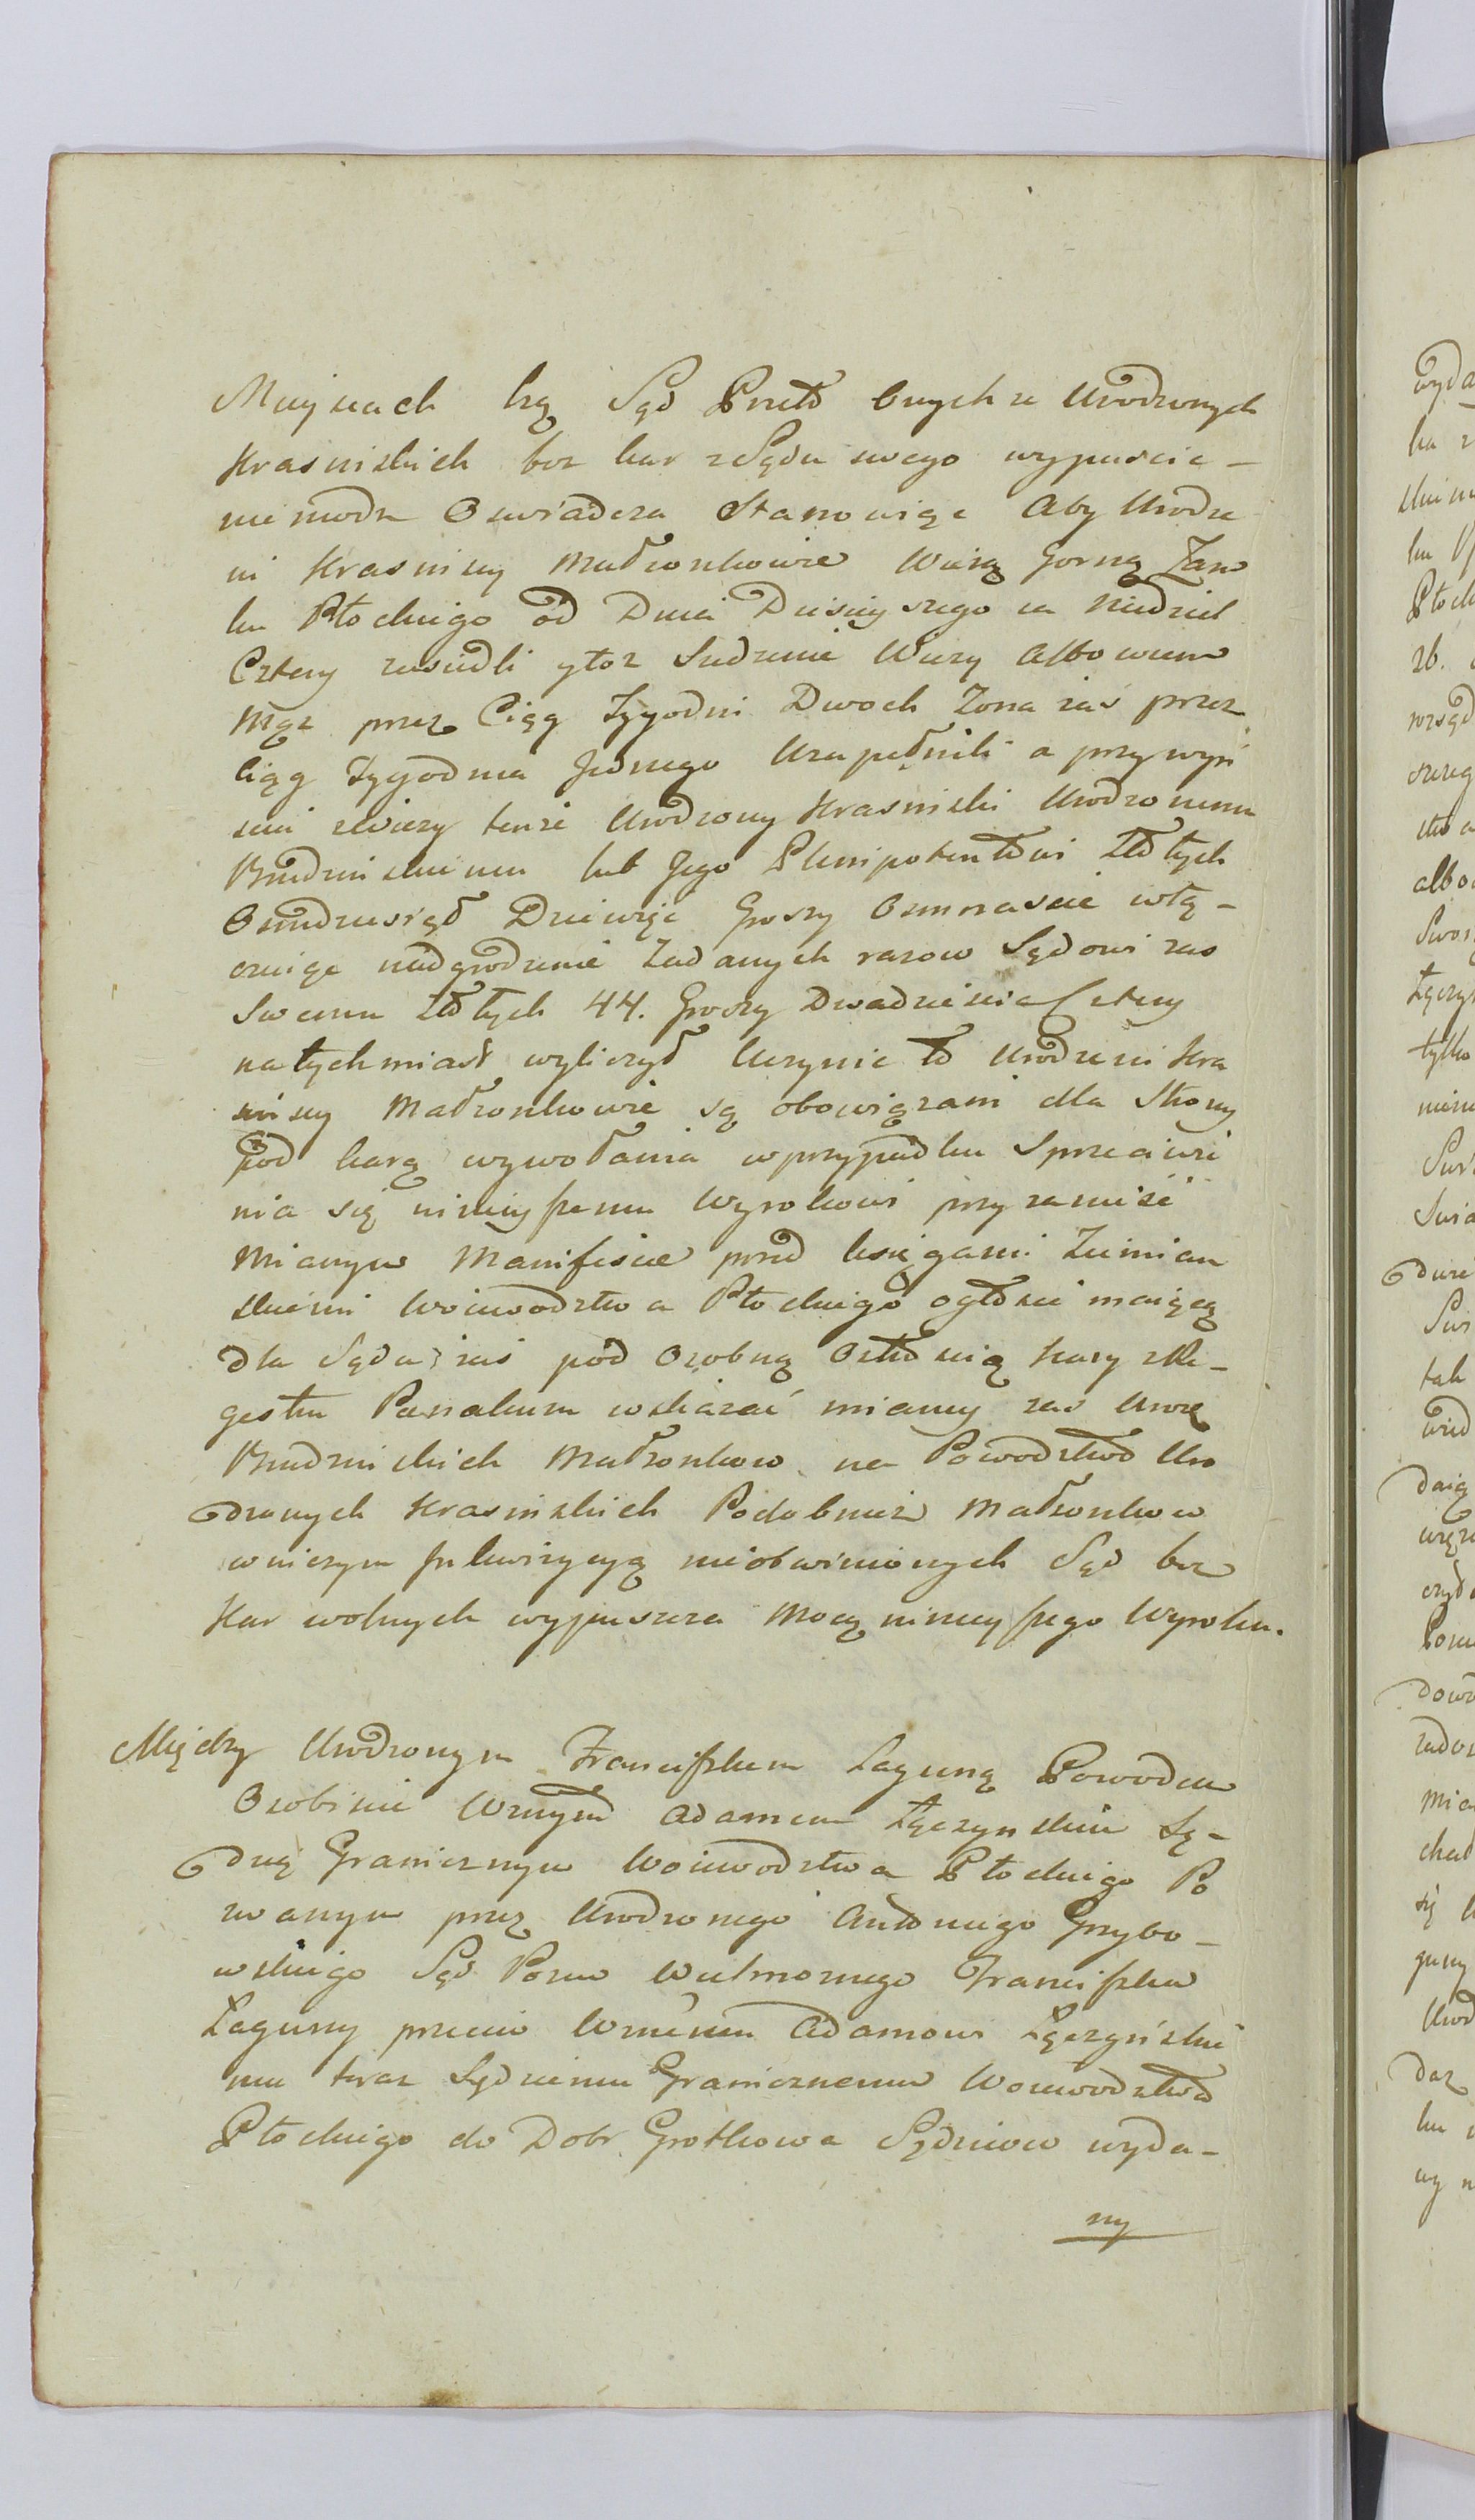 Mieyscach bą Sąd Przeto onychże Urodzonych
Krasniskich bez kar z Sądu swego wypuscic –
nie może Oswiadcza Stanowiąc Aby Urodze
ni Krasniscy Małzonkowie Wieżą Gorną Zam
ku Płockiego od Dnia Dzisieyszego za Niedziel
Cztery zasiedli ytoż Siedzenie Wiezy Albowiem
Mąż przez Ciąg Tygodni Dwoch Zona zaś przez
Ciąg Tygodnia Jednego Uzupełnili a przy wyṡ
sciu zWiezy tenże Urodzony Krasniski Urodzonemu
Rudzinskiemu lub Jego Plenipotentowi Złotych
Osmdziesiąt Dziewięć Groszy Osmnascie włą –
czaiąc nadgrodzenie Zadanych razow Sądowi zas
Swemu Złotych 44. Groszy Dwadziescia Cztery
natychmiast wyliczył Uczynic to Urodzeni Kra
sniscy Małzonkowie są obowiązani dla Strony
pod karą wywołania wprzypadku Sprzeciwie
nia się ninieyszemu Wyrokowi przy zanieść
Mianym Manifescie przed księgami Ziemian
skiemi Woiewodztwa Płockiego ogłosić maiącą
dla Sądu zaś pod Osobną Ostroscią kary zRe –
gestru Paenalium wskazać miany zas Urod
Rudzinskich Małzonkow na Powodztwo Uro
dzonych Krasinskich Podobnież Małzonkow
wniczym Inkwizycyą nieobwinionych Sąd bez
Kar wolnych wypuszcza Mocą ninieyszego Wyroku.
Między Urodzonym Franciszkiem Laguną Powodem
Osobiscie Wznym Adamem Łączynskim Sę –
dzią Granicznym Woiewodztwa Płockiego Po
zwanym przez Urodzonego Antoniego Grzybo –
wskiego Sąd Pozew Wielmoznego Franciszka
Laguny przeciw Wznemu Adamowi Łączyńskie
mu teraz Sędziemu Granicznemu Woiewodztwa
Płockiego do Dobr Grotkowa Sędziwow wyda –
ny